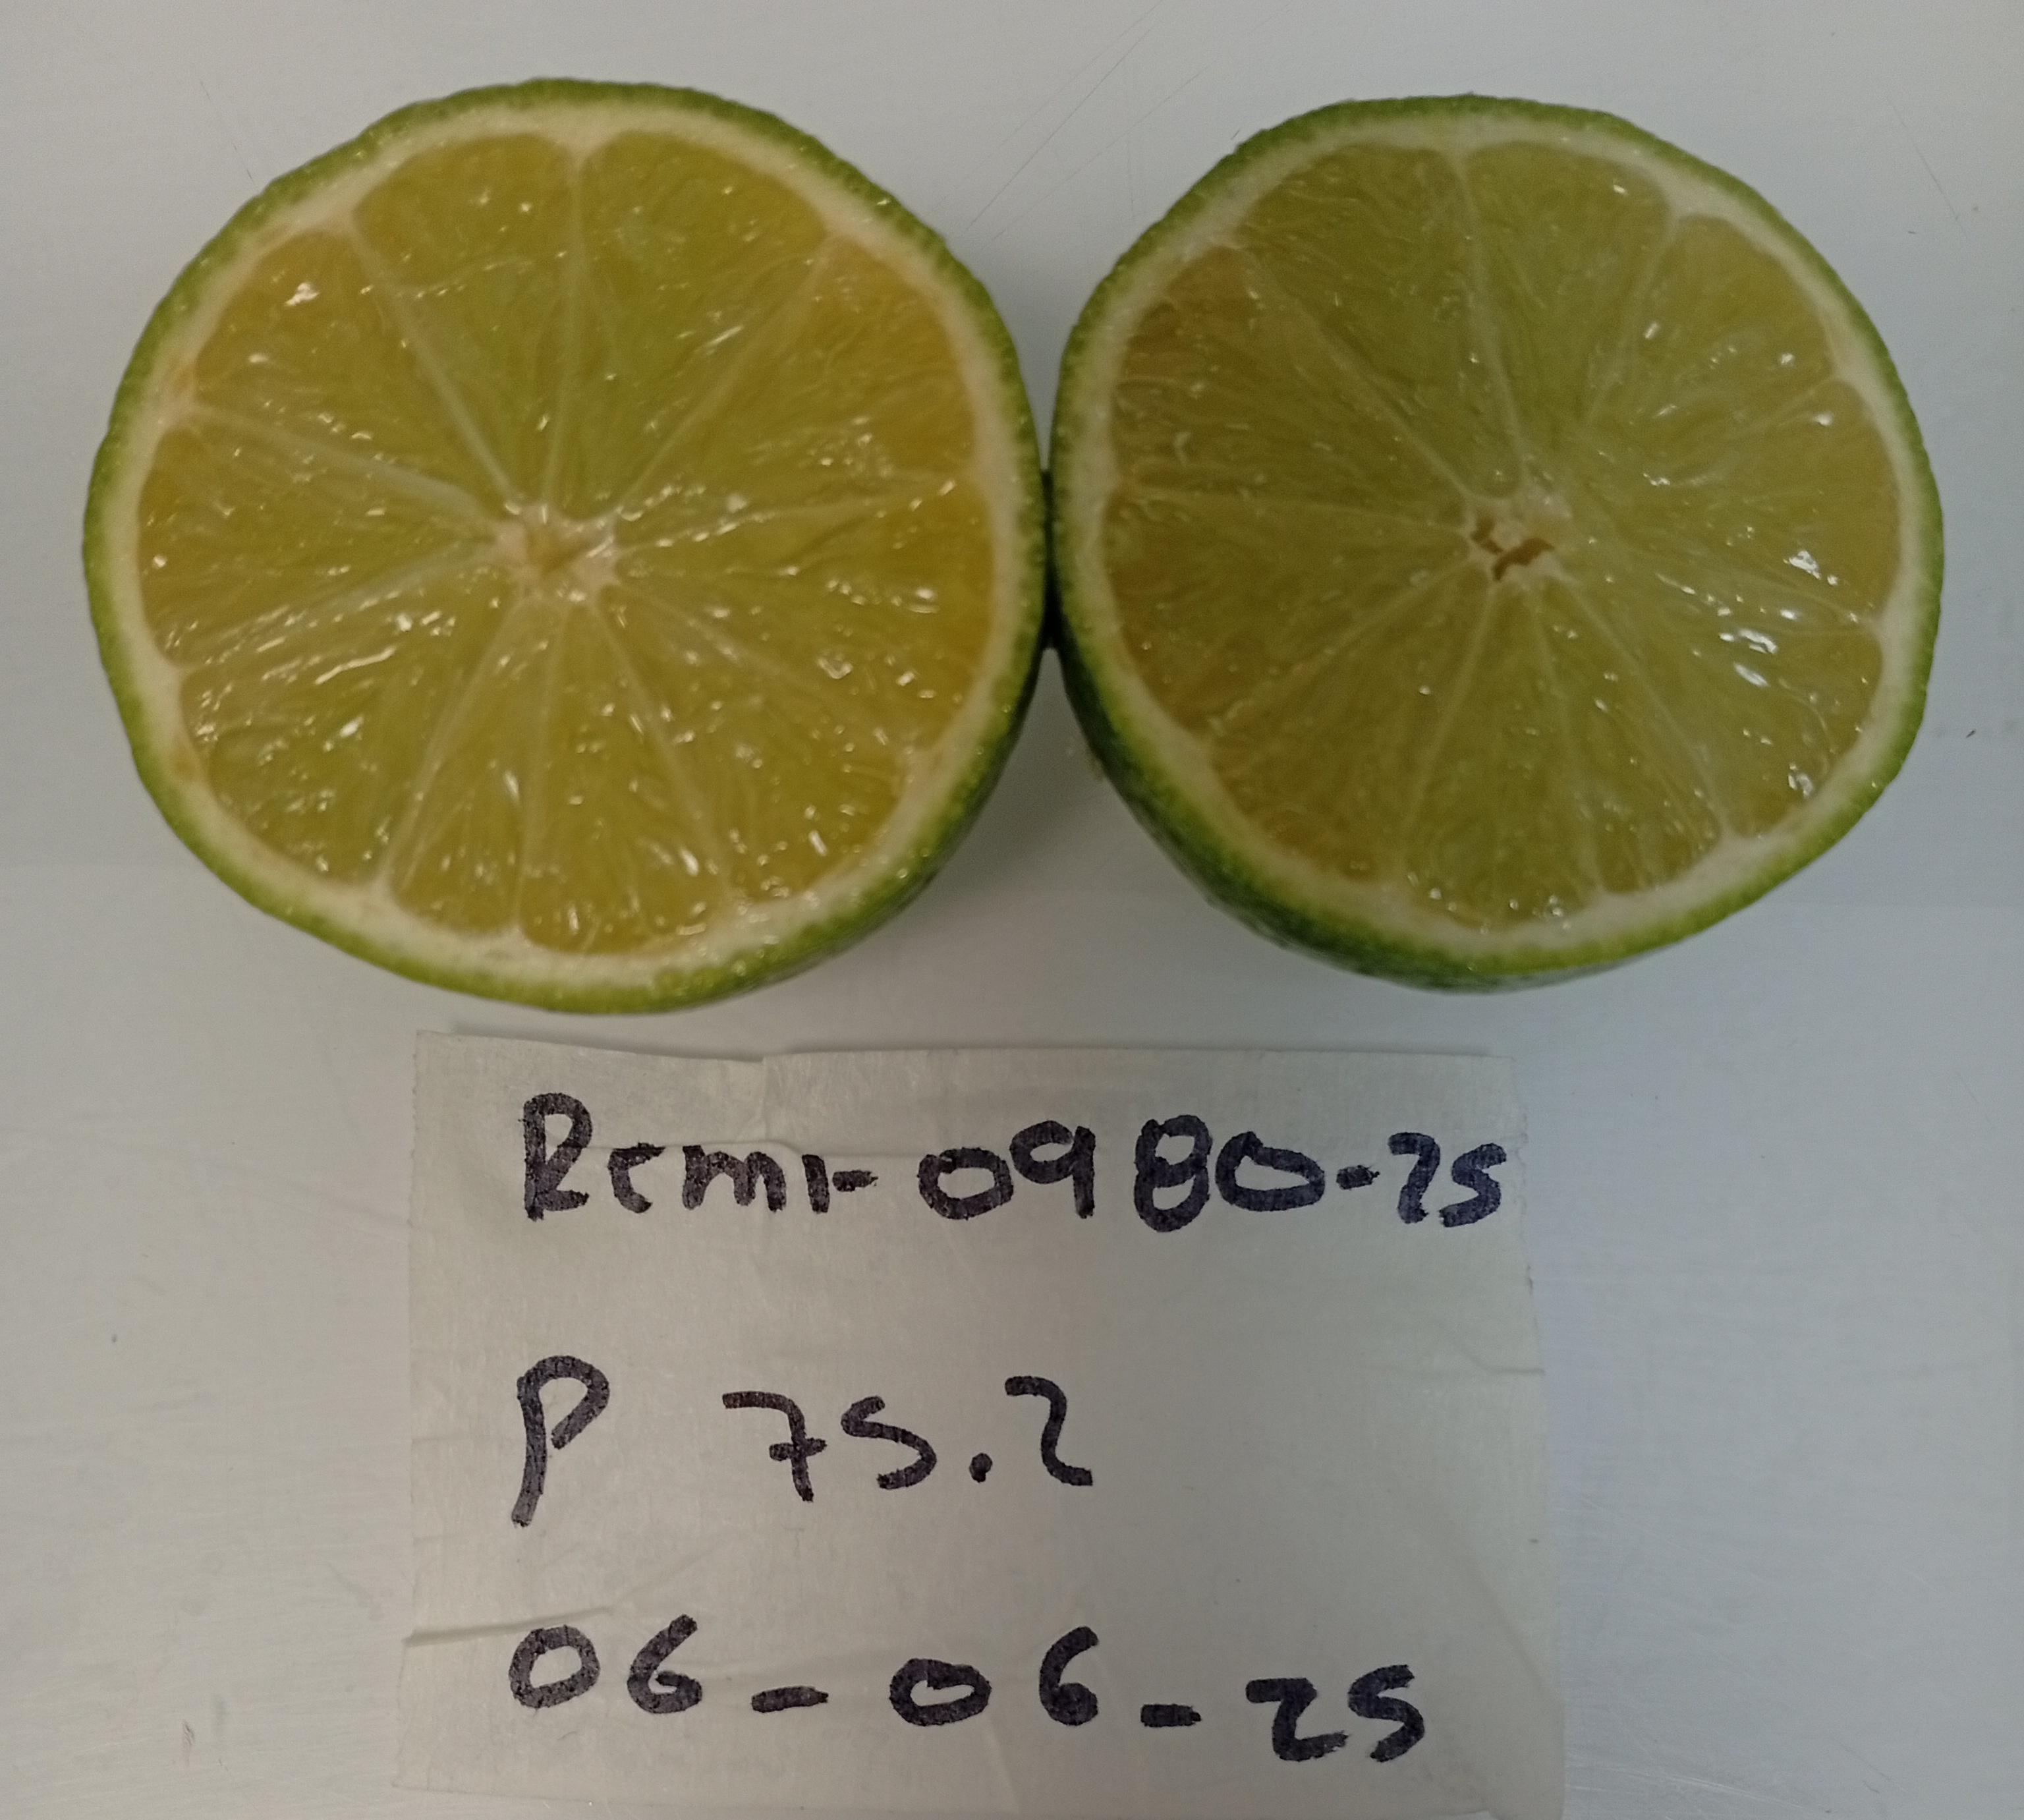 Remi-0980-25
P 75.2
06-06-25